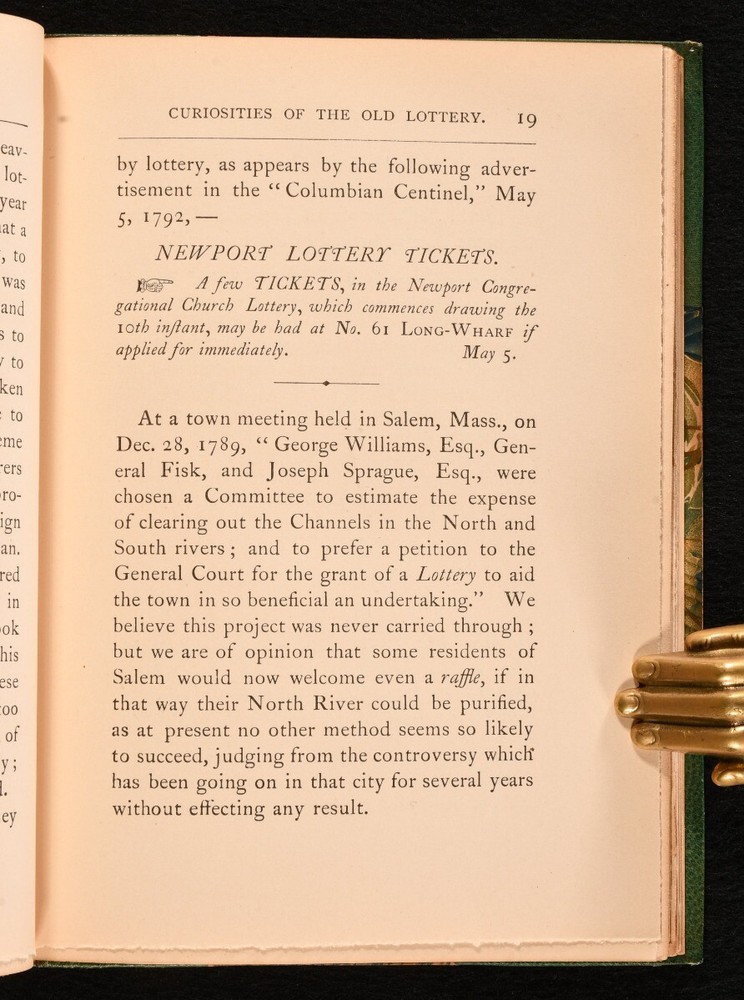 CURIOSITIES OF THE OLD LOTTERY. 19
by lottery, as appears by the following adver-
tisement in the “Columbian Centinel,” May
5, 1792,—
NEWPORT LOTTERY TICKETS.
☞ A few TICKETS, in the Newport Congre-
gational Church Lottery, which commences drawing the
10th inſtant, may be had at No. 61 LONG-WHARF if
applied for immediately. May 5.
At a town meeting held in Salem, Mass., on
Dec. 28, 1789, “George Williams, Esq., Gen-
eral Fisk, and Joseph Sprague, Esq., were
chosen a Committee to estimate the expense
of clearing out the Channels in the North and
South rivers; and to prefer a petition to the
General Court for the grant of a Lottery to aid
the town in so beneficial an undertaking.” We
believe this project was never carried through;
but we are of opinion that some residents of
Salem would now welcome even a raffle, if in
that way their North River could be purified,
as at present no other method seems so likely
to succeed, judging from the controversy which
has been going on in that city for several years
without effecting any result.
eav-
lot-
year
at a
, to
was
and
s to
y to
ken
to
eme
rers
pro-
ign
an.
red
in
ook
his
ese
too
of
y;
l.
ey